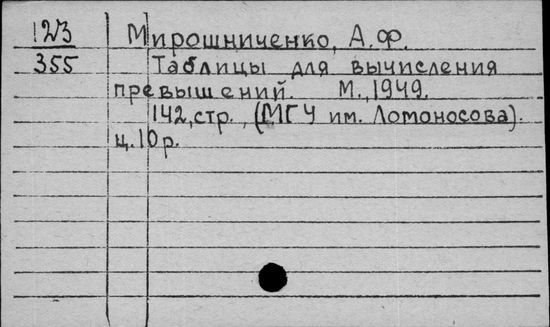 123 Мирошниченко, А.Ф.
355 Таблицы для вычисления
превышений. М., 1949.
142, стр., (МГУ им. Ломоносова).
ц. 10 р.